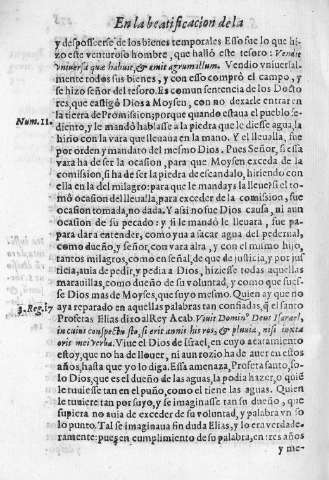 En la beatificacion de la
y desposseerse de los bienes temporales Esso fue lo que hi-
zo este venturoso hombre, que halló este tesoro: Vendit
vniuersa quæ habuit, & emit agrum illum. Vendio vniuersal-
mente todos sus bienes, y con esso compró el campo, y
se hizo señor del tesoro. Es comun sentencia de los Docto
res, que castigó Dios a Moysen, con no dexarle entrar en
la tierra de Promission; porque quando estaua el pueblo se-
Num. 11.
diento, y le mandó hablasse a la piedra que le diesse agua, la
hirio con la vara que lleuaua en la mano. Y el lleualla, fue
por orden y mandato del mesmo Dios. Pues Señor, si essa
vara ha de ser la ocasion, para que Moysen exceda de la
comission, si ha de ser la piedra de escandalo, hiriendo con
ella en la del milagro: para que le mandays la lleue? si el to-
mó ocasion del lleualla, para exceder de la comission, fue
ocasion tomada, no dada. Y assi no fue Dios causa, ni aun
ocasion de su pecado: y si le mandó le lleuara, fue pa-
para dar a entender, como yua a sacar agua del pedernal,
como dueño, y señor, con vara alta, y con el mismo hijo,
tantos milagros, como en señal, de que de justicia, y por jus
ticia, auia de pedir, y pedia a Dios, hiziesse todas aquellas
marauillas, como dueño de su voluntad, y como que sues-
se Dios mas de Moyses, que suyo mesmo. Quien ay que no
aya reparado en aquellas palabras tan confiadas, q̃ el santo
3. Reg. 17
Profetas Elias dixo al Rey Acab. Viuit Dominº Deus Israel,
in cuius conspectu sto, si erit annis his ros, & pluuia, nisi iuxta
oris mei verba. Viue el Dios de Israel, en cuyo acatamiento
estoy, que no ha de llouer, ni aun rozio ha de auer en estos
años, hasta que yo lo diga. Essa amenaza, Profeta santo, so-
lo Dios, que es el dueño de las aguas, la podia hazer, o quiẽ
le tuuiesse tan en el puño, como el tiene las aguas. Quien
le tuuiere tan por suyo, y se imaginasse tan su dueño, que
supiera no auia de exceder de su voluntad, y palabra vn so
lo punto. Tal se imaginaua sin duda Elias, y lo era verdade-
ramente: pues en cumplimiento de su palabra, en tres años
y me-